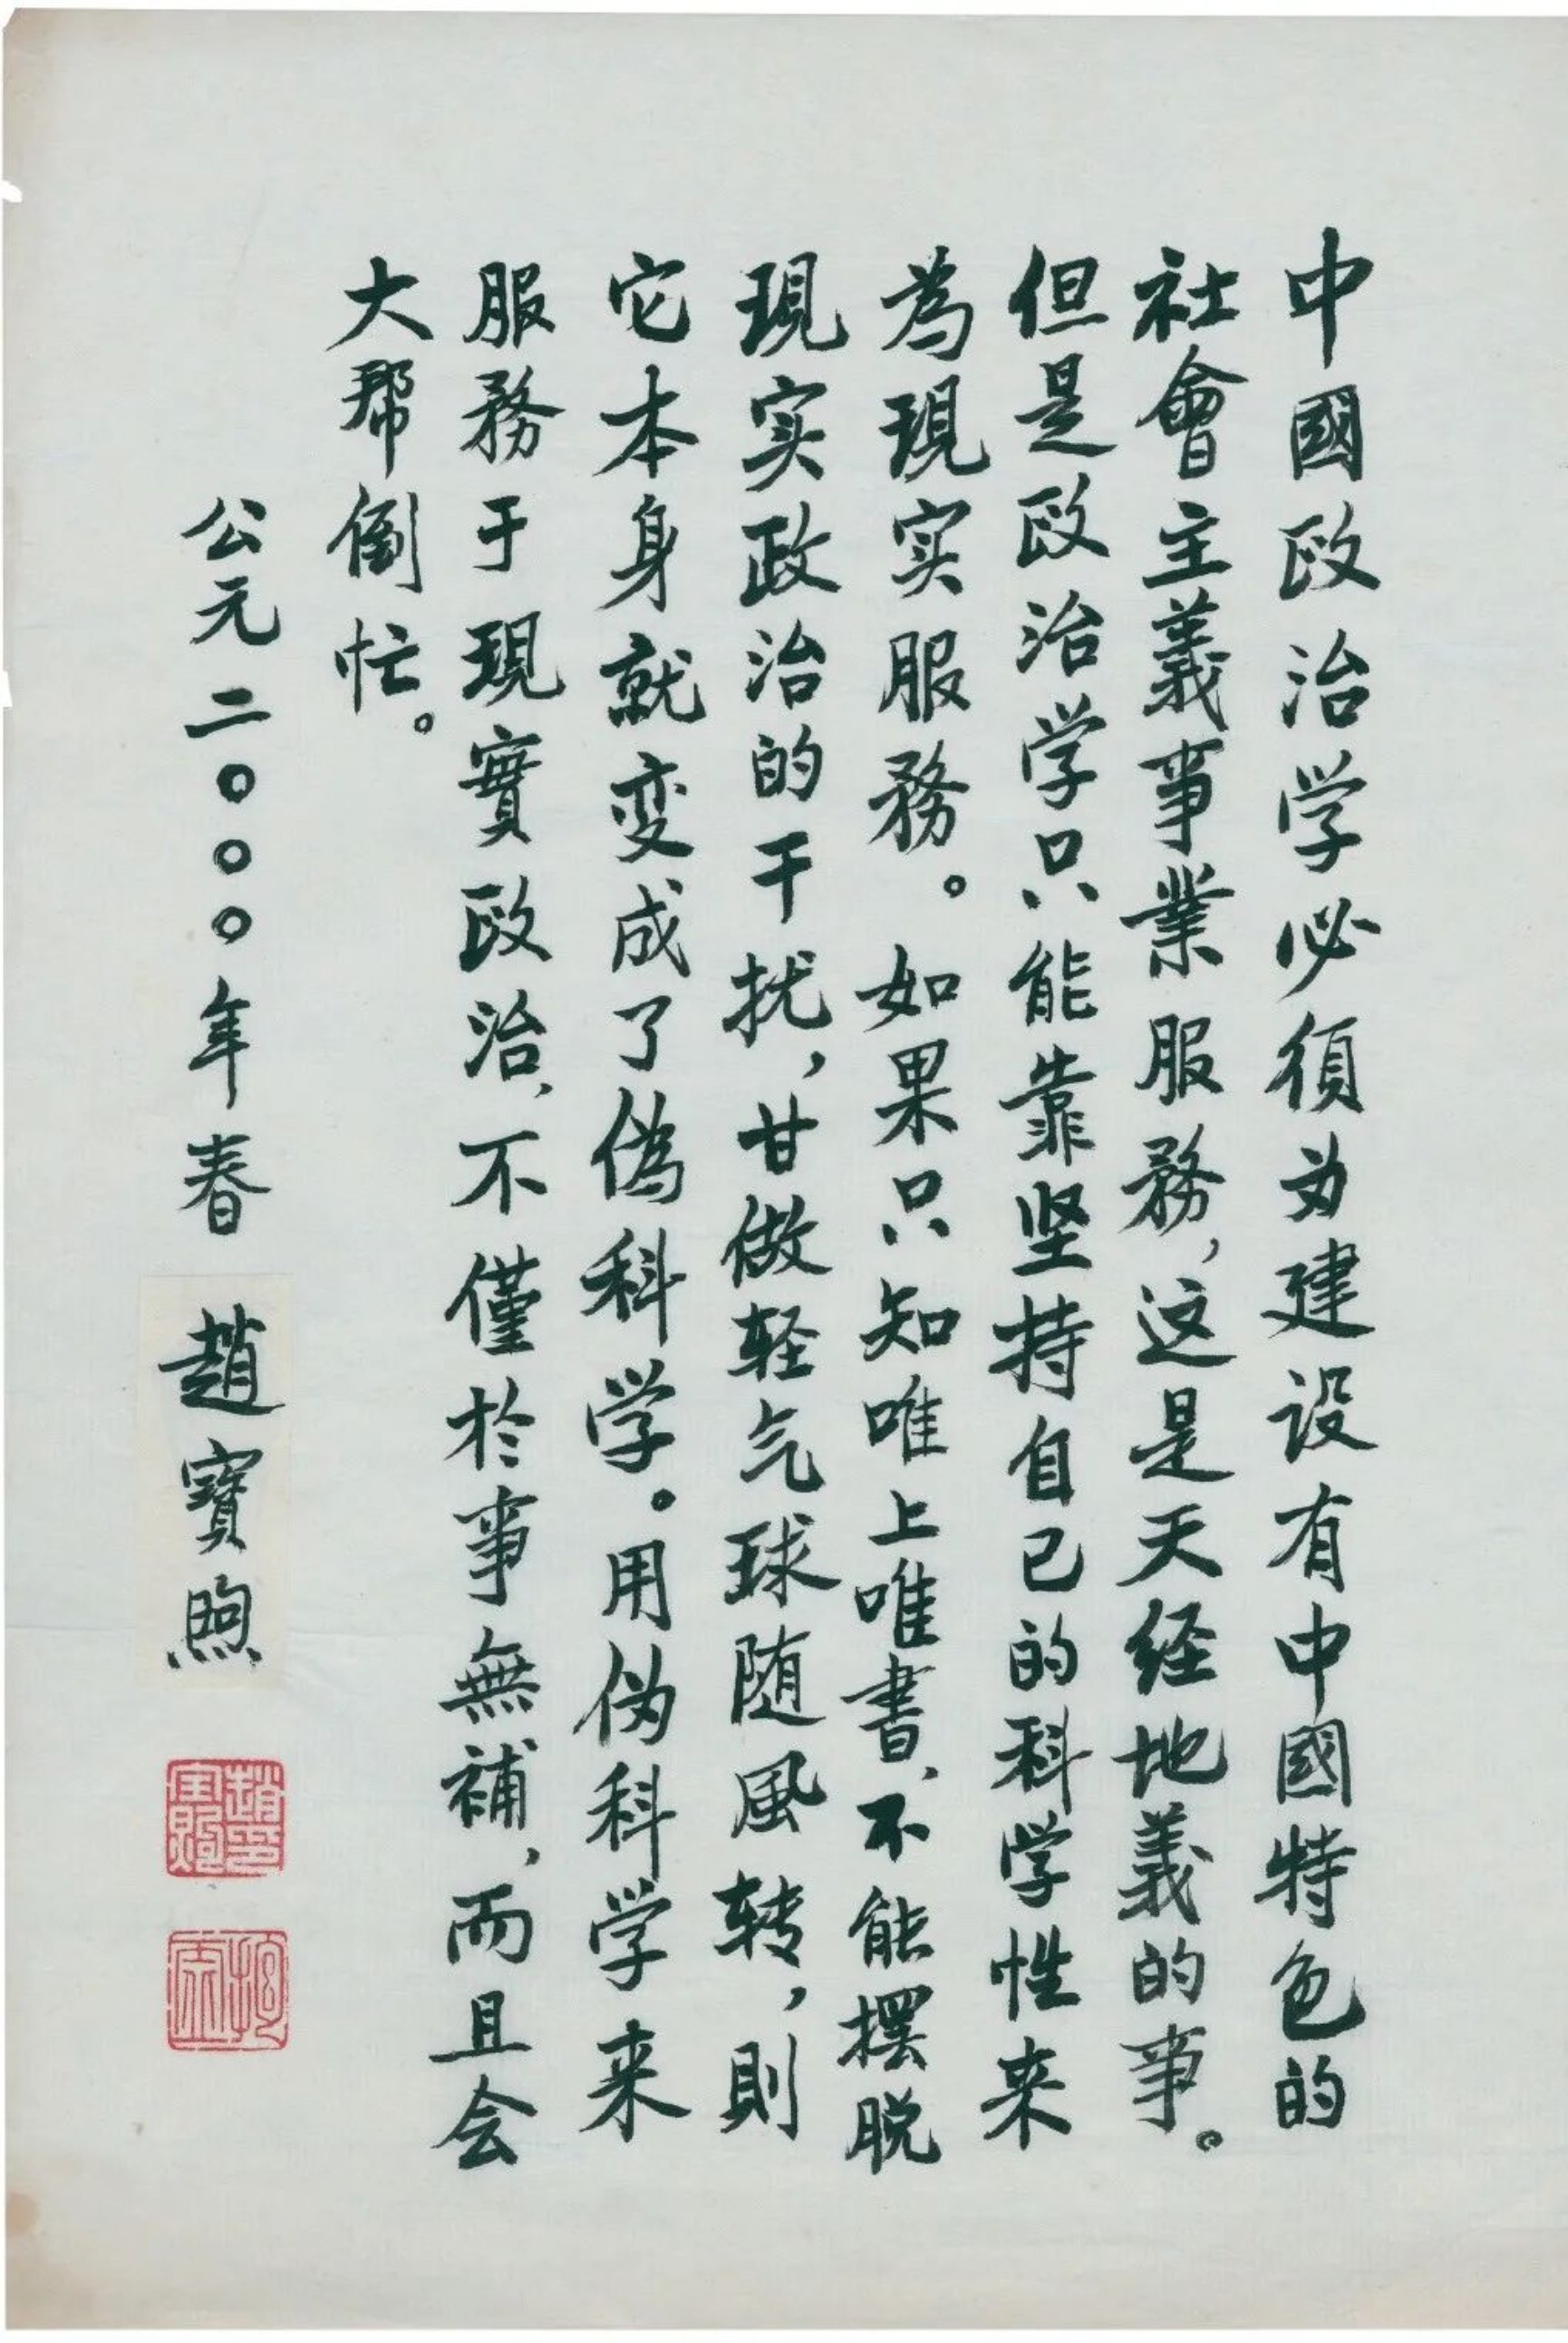 中國政治学必須为建设有中國特色的
社會主義事業服務，这是天经地義的事。
但是政治学只能靠坚持自己的科学性来
為現实服務。如果只知唯上唯書、不能摆脱
現实政治的干扰，甘做轻气球随風转，則
它本身就变成了偽科学。用伪科学来
服務于現實政治，不僅於事無補，而且会
大帮倒忙。
公元二〇〇〇年春 趙寶煦
趙寶煦印